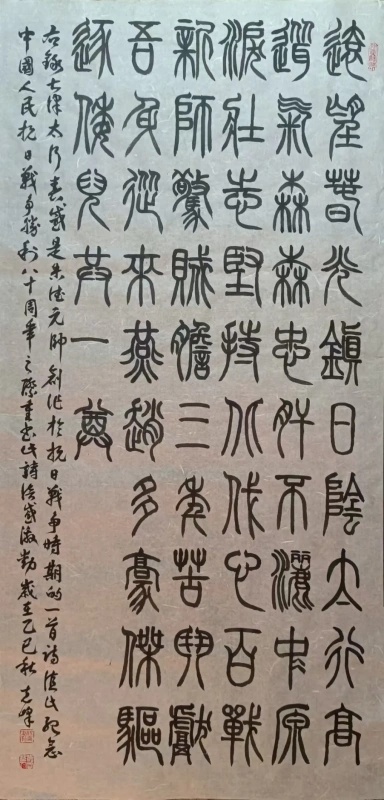 遠望萅光鎮日陰太行高
聳氣森森忠肝不灑中原
淚壯志堅持北伐心百戰
新師驚賊膽三年苦鬥獻
吾身從來燕趙多豪傑驅
逐倭兒共一尊
右錄七律太行春感是朱德元帥創作於抗日戰爭時期的一首詩值此紀念
中國人民抗日戰爭勝利八十周年之際重書此詩倍感激動歲在乙巳秋